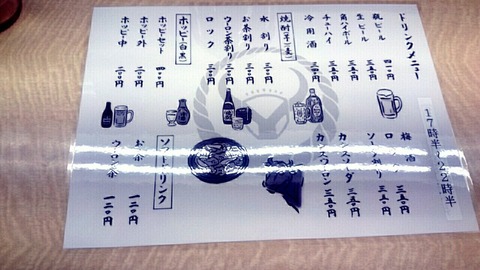 ドリンクメニュー
瓶ビール 四一〇円
生ビール 三五〇円
角ハイボール 三五〇円
チューハイ 三五〇円
冷用酒
焼酎(芋・麦)
水割り 三一〇円
お茶割り 三一〇円
ウーロン茶割り 三一〇円
ロック
ホッピー(白・黒)
ホッピーセット 四一〇円
ホッピー外 二一〇円
ホッピー中 二一〇円
17時半〜22時半
梅酒
ロック 三五〇円
ソーダ割り 三五〇円
カシスソーダ 三五〇円
カシスウーロン 三五〇円
ソフトドリンク
お茶 一二〇円
ウーロン茶 一二〇円